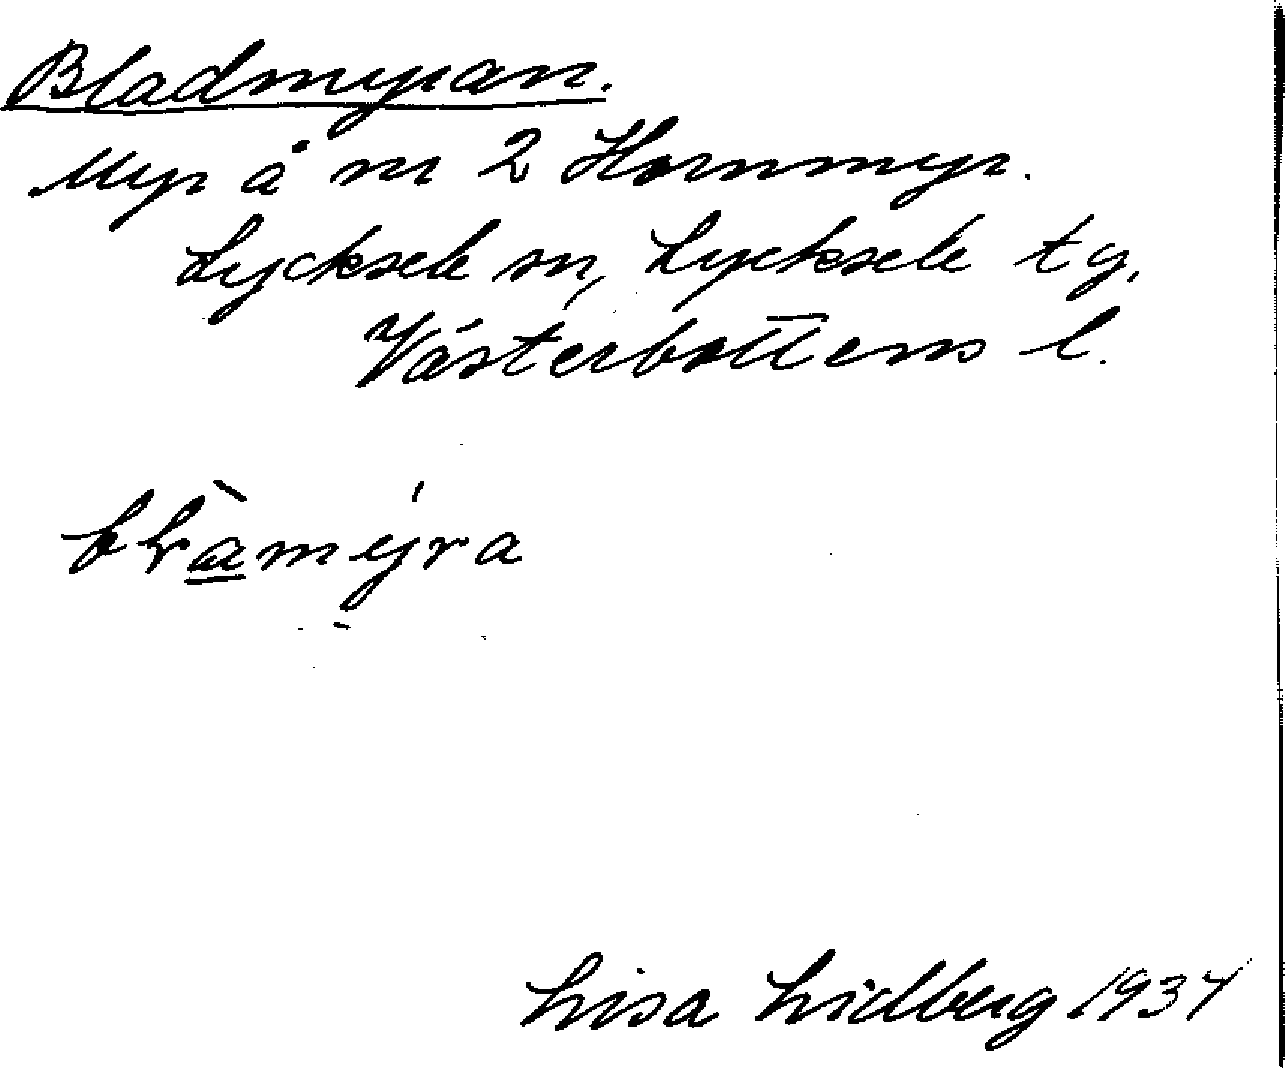 Bladmyran.
Myr å nr 2 Hornmyr.
Lycksele sn, Lycksele tg,
Västerbottens l.
Lisa Lidberg 1934